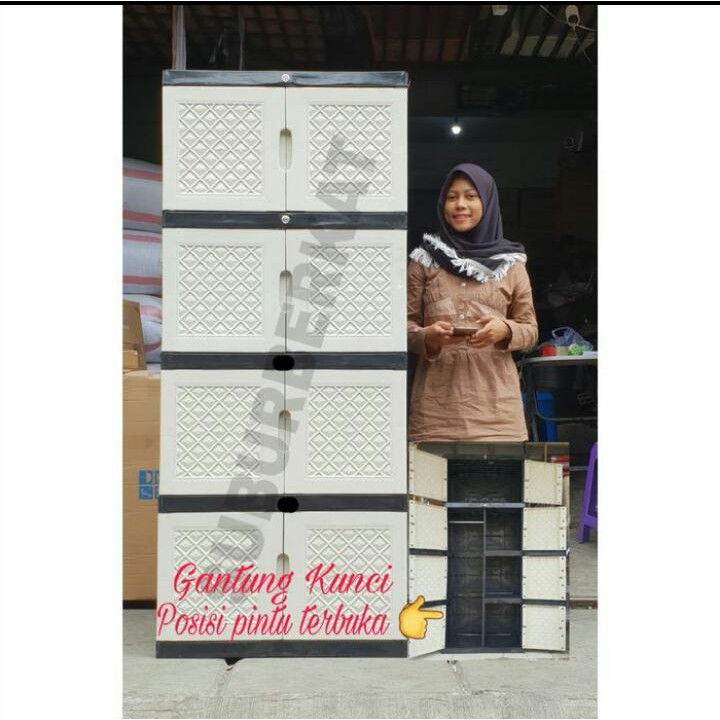 SUBURBERKAT
Gantung Kunci
Posisi pintu terbuka